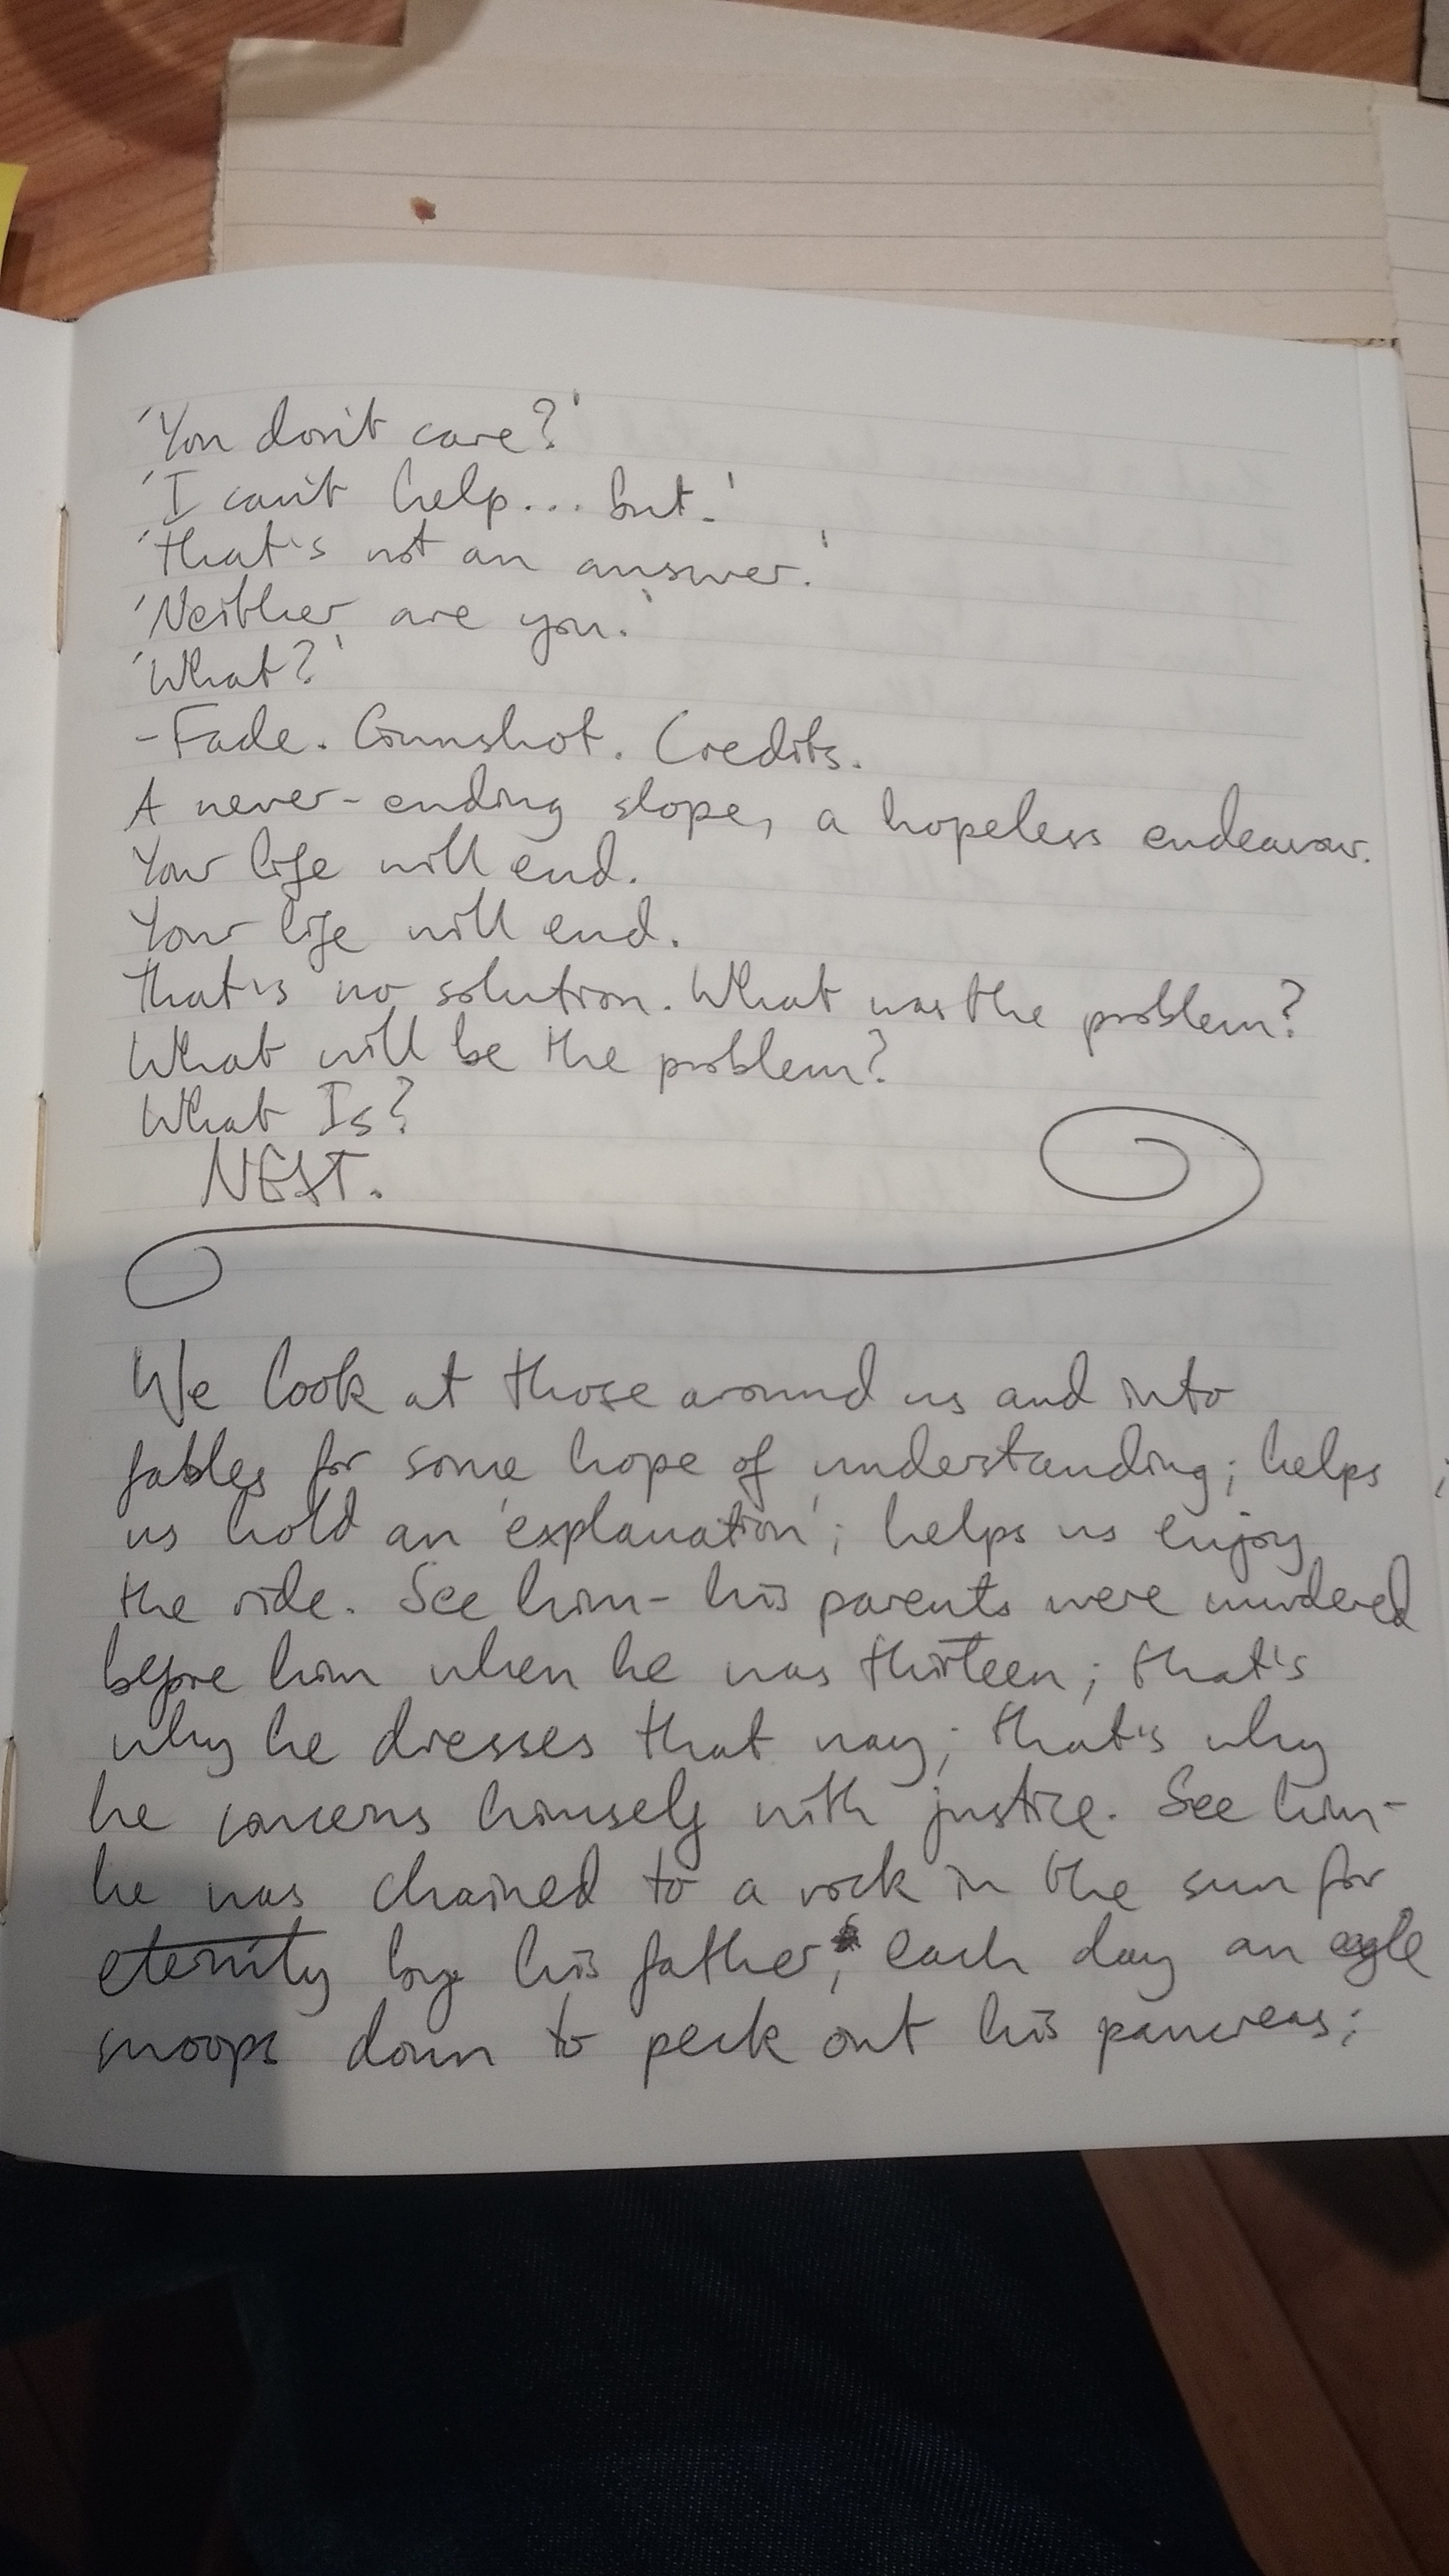 'You don't care?'
'I can't help... but.'
'That's not an answer.'
'Neither are you.'
'What?'
- Fade. Gunshot. Credits.
A never-ending slope, a hopeless endeavour.
Your life will end.
Your life will end.
That's no solution. What was the problem?
What will be the problem?
What Is?
NEXT.
We look at those around us and into
fables for some hope of understanding; helps
us hold an 'explanation'; helps us enjoy
the ride. See him - his parents were murdered
before him when he was thirteen; that's
why he dresses that way; that's why
he concerns himself with justice. See him -
he was chained to a rock in the sun for
eternity by his father; each day an eagle
swoops down to peck out his pancreas;